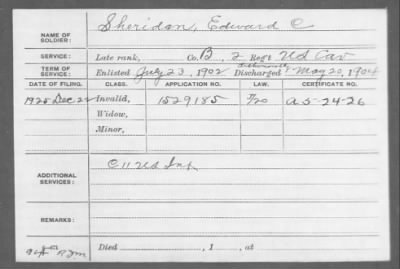 NAME OF SOLDIER: Sheridan, Edward C
SERVICE: Late rank, Co. B, 2 Reg't US Cav
TERM OF SERVICE: Enlisted July 23, 1902 Discharged May 20, 1904
DATE OF FILING. CLASS. APPLICATION NO. LAW. CERTIFICATE NO.
1925 Dec Invalid, 1529185 A 5-24-26
Widow,
Minor,
ADDITIONAL SERVICES: C 11 US Inf
REMARKS:
Died , 1 , at